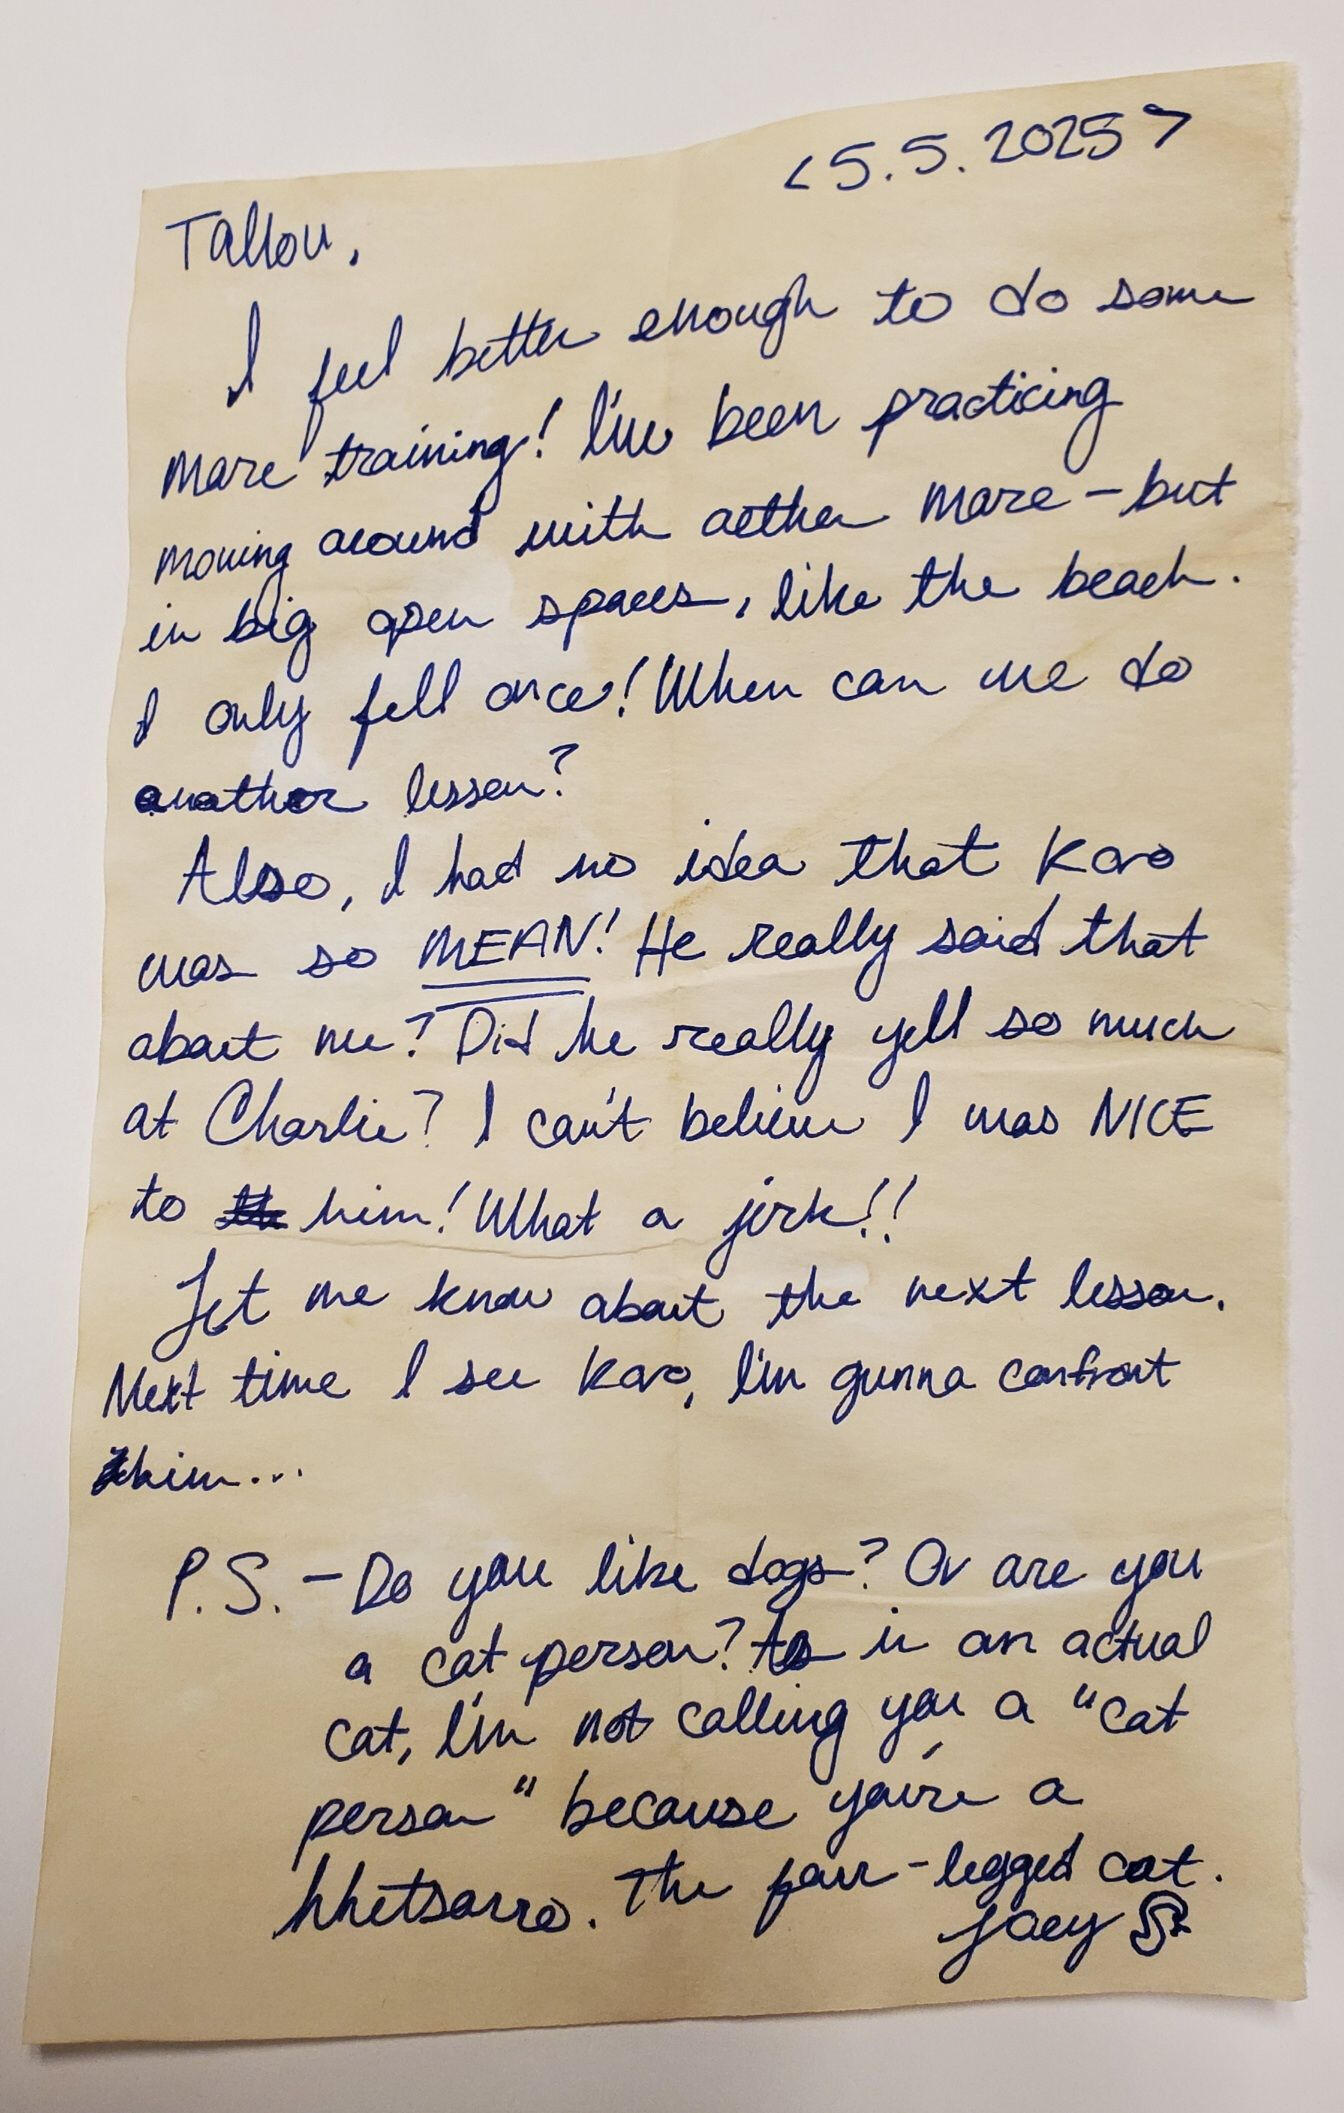 <5.5.2025>
Tallou,
I feel better enough to do some
more training! I've been practicing
moving around with aether more – but
in big open spaces, like the beach.
I only fell once! When can we do
another lesson?
Also, I had no idea that Kovo
was so MEAN! He really said that
about me? Did he really yell so much
at Charlie? I can't believe I was NICE
to him! What a jerk!!
Let me know about the next lesson.
Next time I see Kovo, I'm gunna confront
him...
P.S. – Do you like dogs? Or are you
a cat person? As in an actual
cat, I'm not calling you a "cat
person" because you're a
hhetsarro. The four-legged cat.
Joey